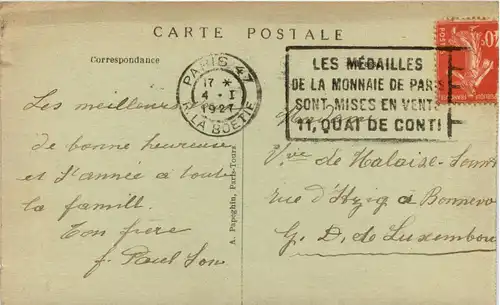 CARTE POSTALE
Correspondance
PARIS 47
17 *
4 - I
1927
R. LA BOETIE
LES MÉDAILLES
DE LA MONNAIE DE PARIS
SONT MISES EN VENTE
11, QUAI DE CONTI
POSTES
Les meilleurs
de bonne heureuse
et Ste année à toute
la famill.
Ton frère
f. Paul
A. Papeghin, Paris-Tours
de Malaise
rue d'Itzig à Bonnevo
G. D. de Luxembou